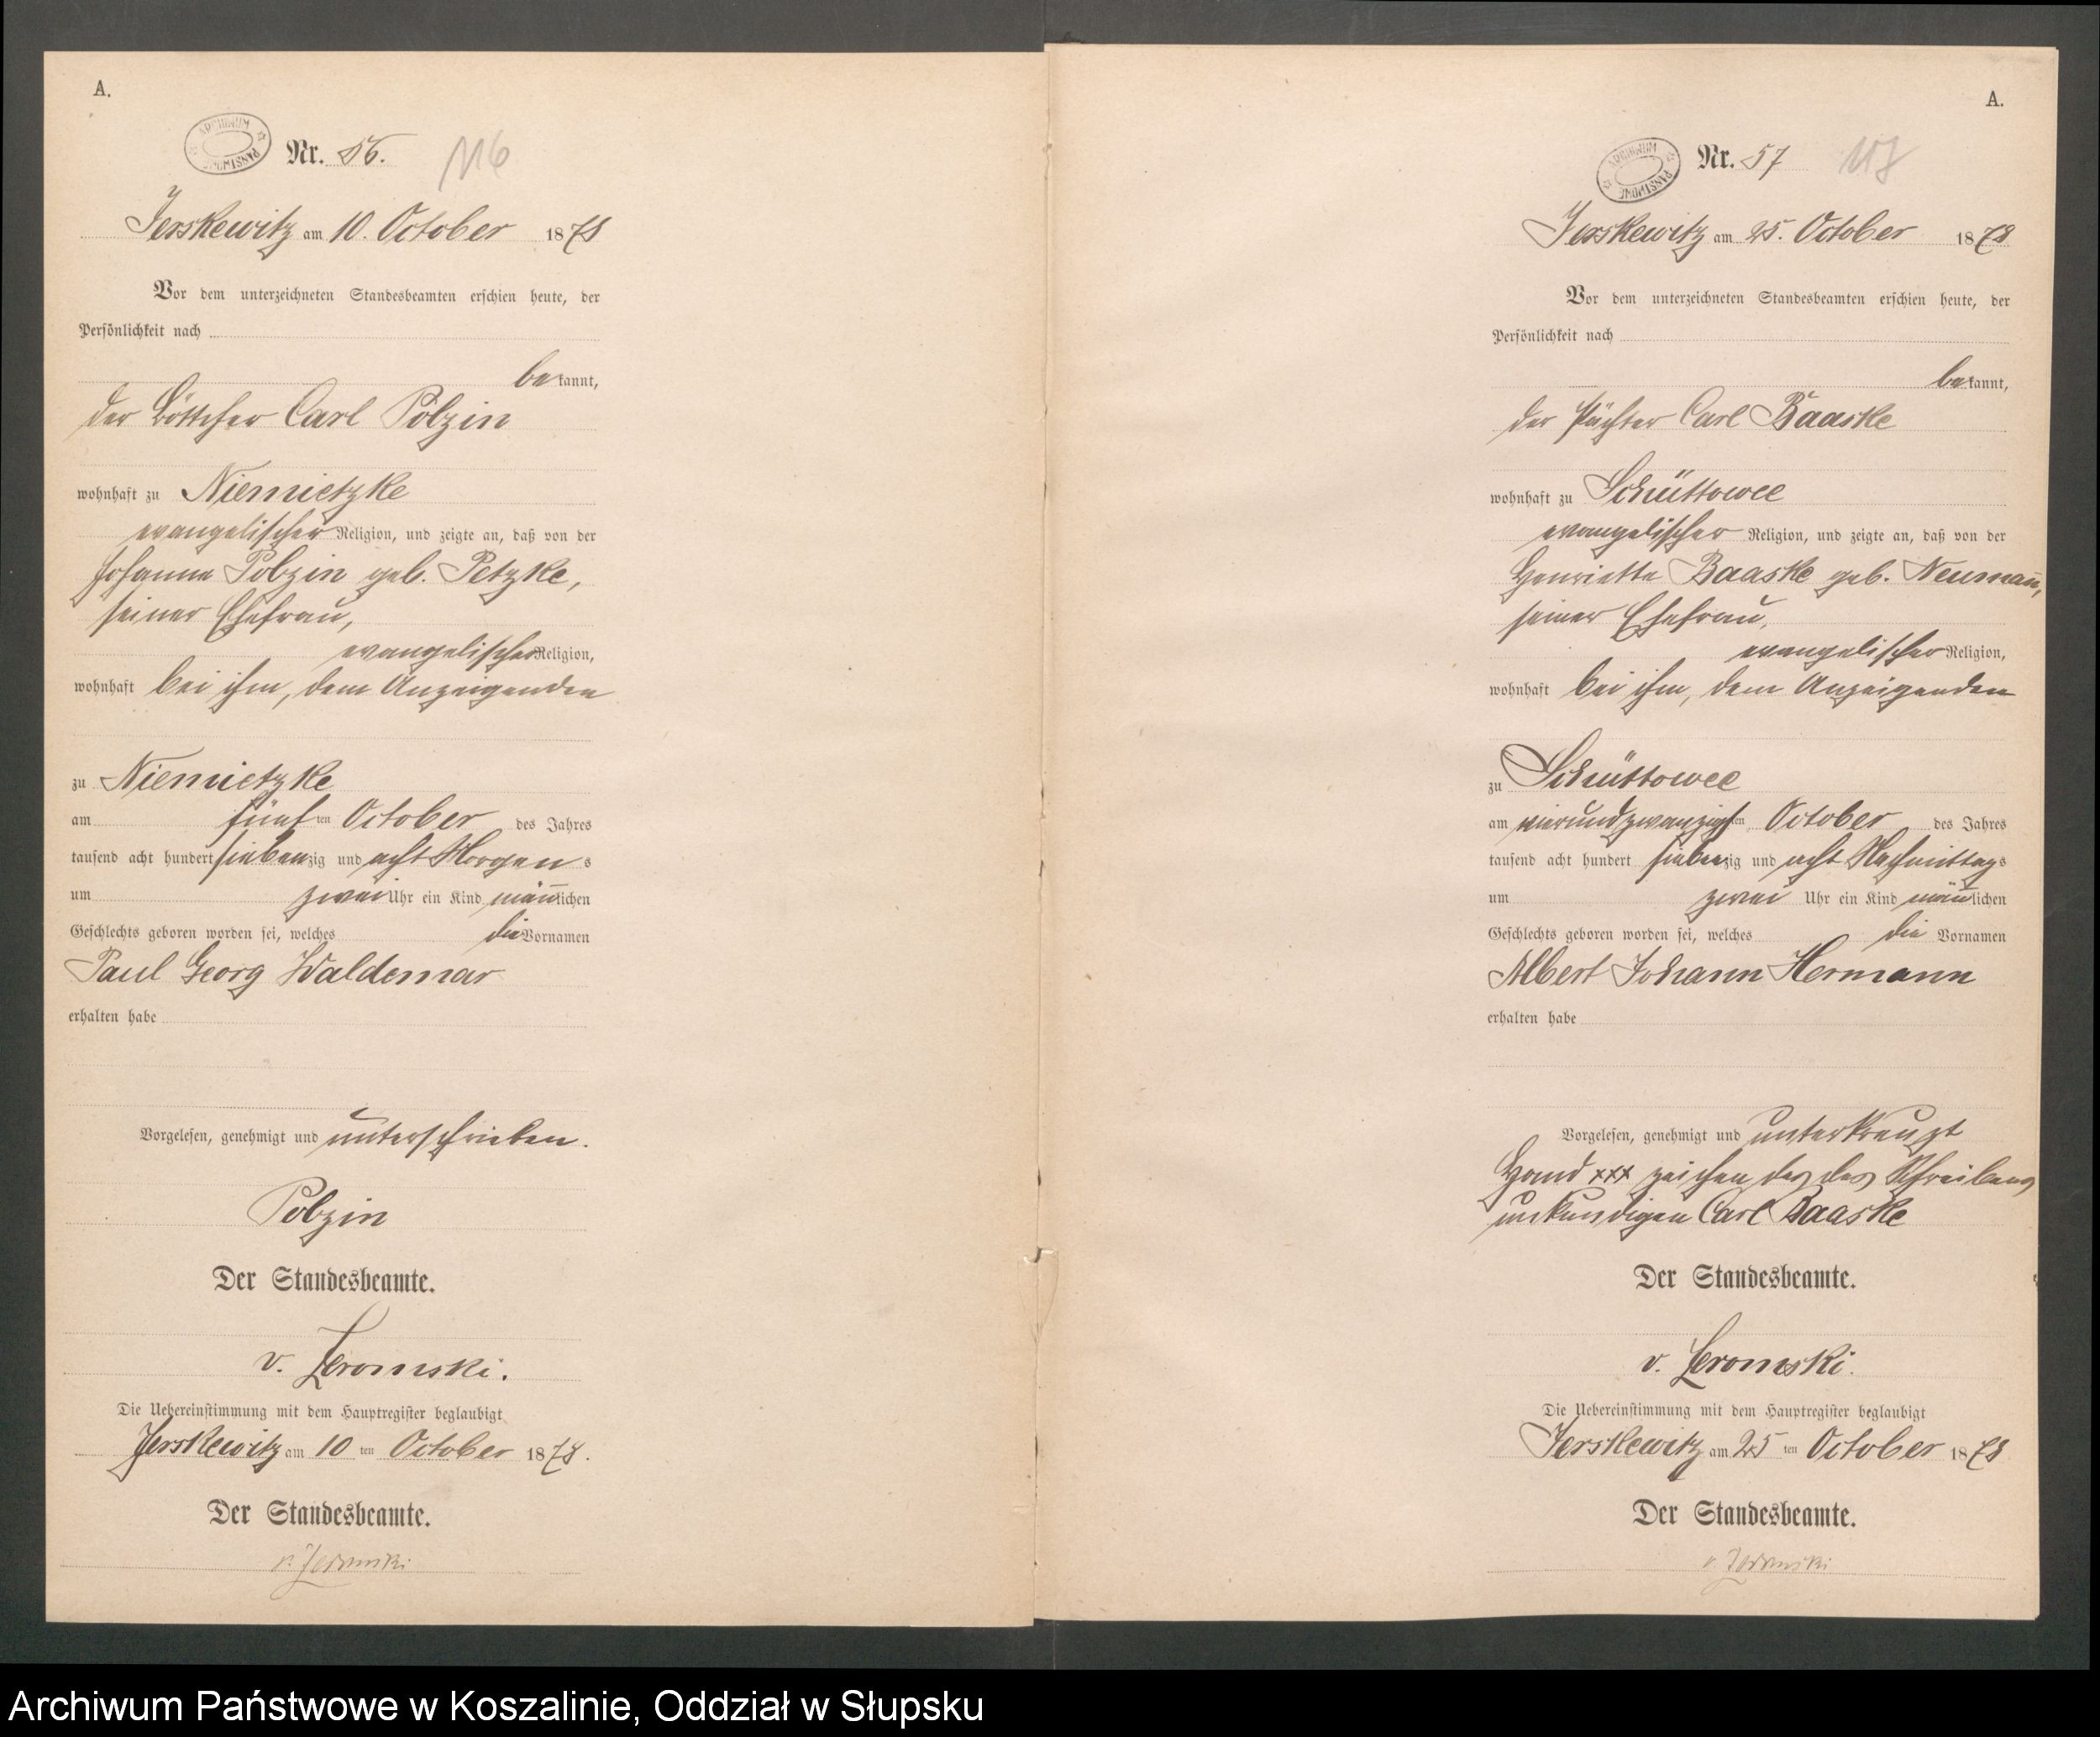 A.
ARCHIWUM PAŃSTWOWE
Nr. 56. 116
Jerskewitz am 10. October 1878
Vor dem unterzeichneten Standesbeamten erschien heute, der
Persönlichkeit nach
bekannt,
der Böttcher Carl Polzin
wohnhaft zu Niemietzke
evangelischer Religion, und zeigte an, daß von der
Johanna Polzin geb. Petzke,
seiner Ehefrau,
evangelischer Religion,
wohnhaft bei ihm, dem Anzeigenden
zu Niemietzke
am fünften October des Jahres
tausend acht hundert siebenzig und acht Morgens
um zwei Uhr ein Kind männlichen
Geschlechts geboren worden sei, welches die Vornamen
Paul Georg Waldemar
erhalten habe
Vorgelesen, genehmigt und unterschrieben.
Polzin
Der Standesbeamte.
v. Zeromski.
Die Uebereinstimmung mit dem Hauptregister beglaubigt
Jerskewitz am 10 ten October 1878.
Der Standesbeamte.
v. Zeromski
A.
ARCHIWUM PAŃSTWOWE
Nr. 57 117
Jerskewitz am 25. October 1878
Vor dem unterzeichneten Standesbeamten erschien heute, der
Persönlichkeit nach
bekannt,
der Pächter Carl Baaske
wohnhaft zu Schüttowee
evangelischer Religion, und zeigte an, daß von der
Henriette Baaske geb. Neumañ,
seiner Ehefrau,
evangelischer Religion,
wohnhaft bei ihm, dem Anzeigenden
zu Schüttowee
am vierundzwanzigsten October des Jahres
tausend acht hundert siebenzig und acht Nachmittags
um zwei Uhr ein Kind männlichen
Geschlechts geboren worden sei, welches die Vornamen
Albert Johann Hermann
erhalten habe
Vorgelesen, genehmigt und unterkreuzt
Hand xxx zeichen des des Schreibens
unkundigen Carl Baaske
Der Standesbeamte.
v. Zeromski.
Die Uebereinstimmung mit dem Hauptregister beglaubigt
Jerskewitz am 25 ten October 1878
Der Standesbeamte.
v. Zeromski
Archiwum Państwowe w Koszalinie, Oddział w Słupsku